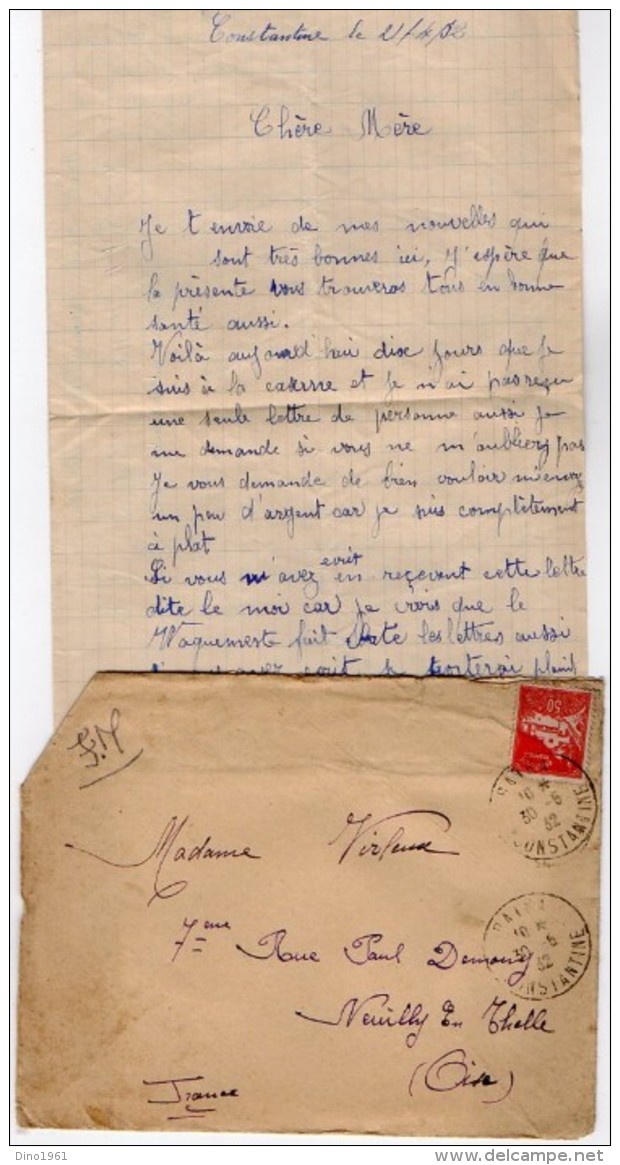 Constantine le 21/4/32
Chère Mère
Je t envoie de mes nouvelles qui
sont très bonnes ici, j'espère que
la présente vous trouveras tous en bonne
santé aussi.
Voilà aujourd'hui dix jours que je
suis à la caserne et je n'ai pas reçu
une seule lettre de personne aussi je
me demande si vous ne m'oubliez pas
Je vous demande de bien vouloir m'envoyez
un peu d'argent car je suis complètement
à plat
Si vous m'avez ecrit en reçevent cette lettre
dite le moi car je crois que le
Vaguemestre fait les lettres aussi
avez écrit je porterai plaint
F.M
50
BATNA
10 *
30 -6
32
CONSTANTINE
Madame Virleux
BATNA
10 *
30 -6
32
CONSTANTINE
7eme Rue Paul Demouy
Neuilly En Thelle
(Oise)
France
Dino1961
delcampe.net